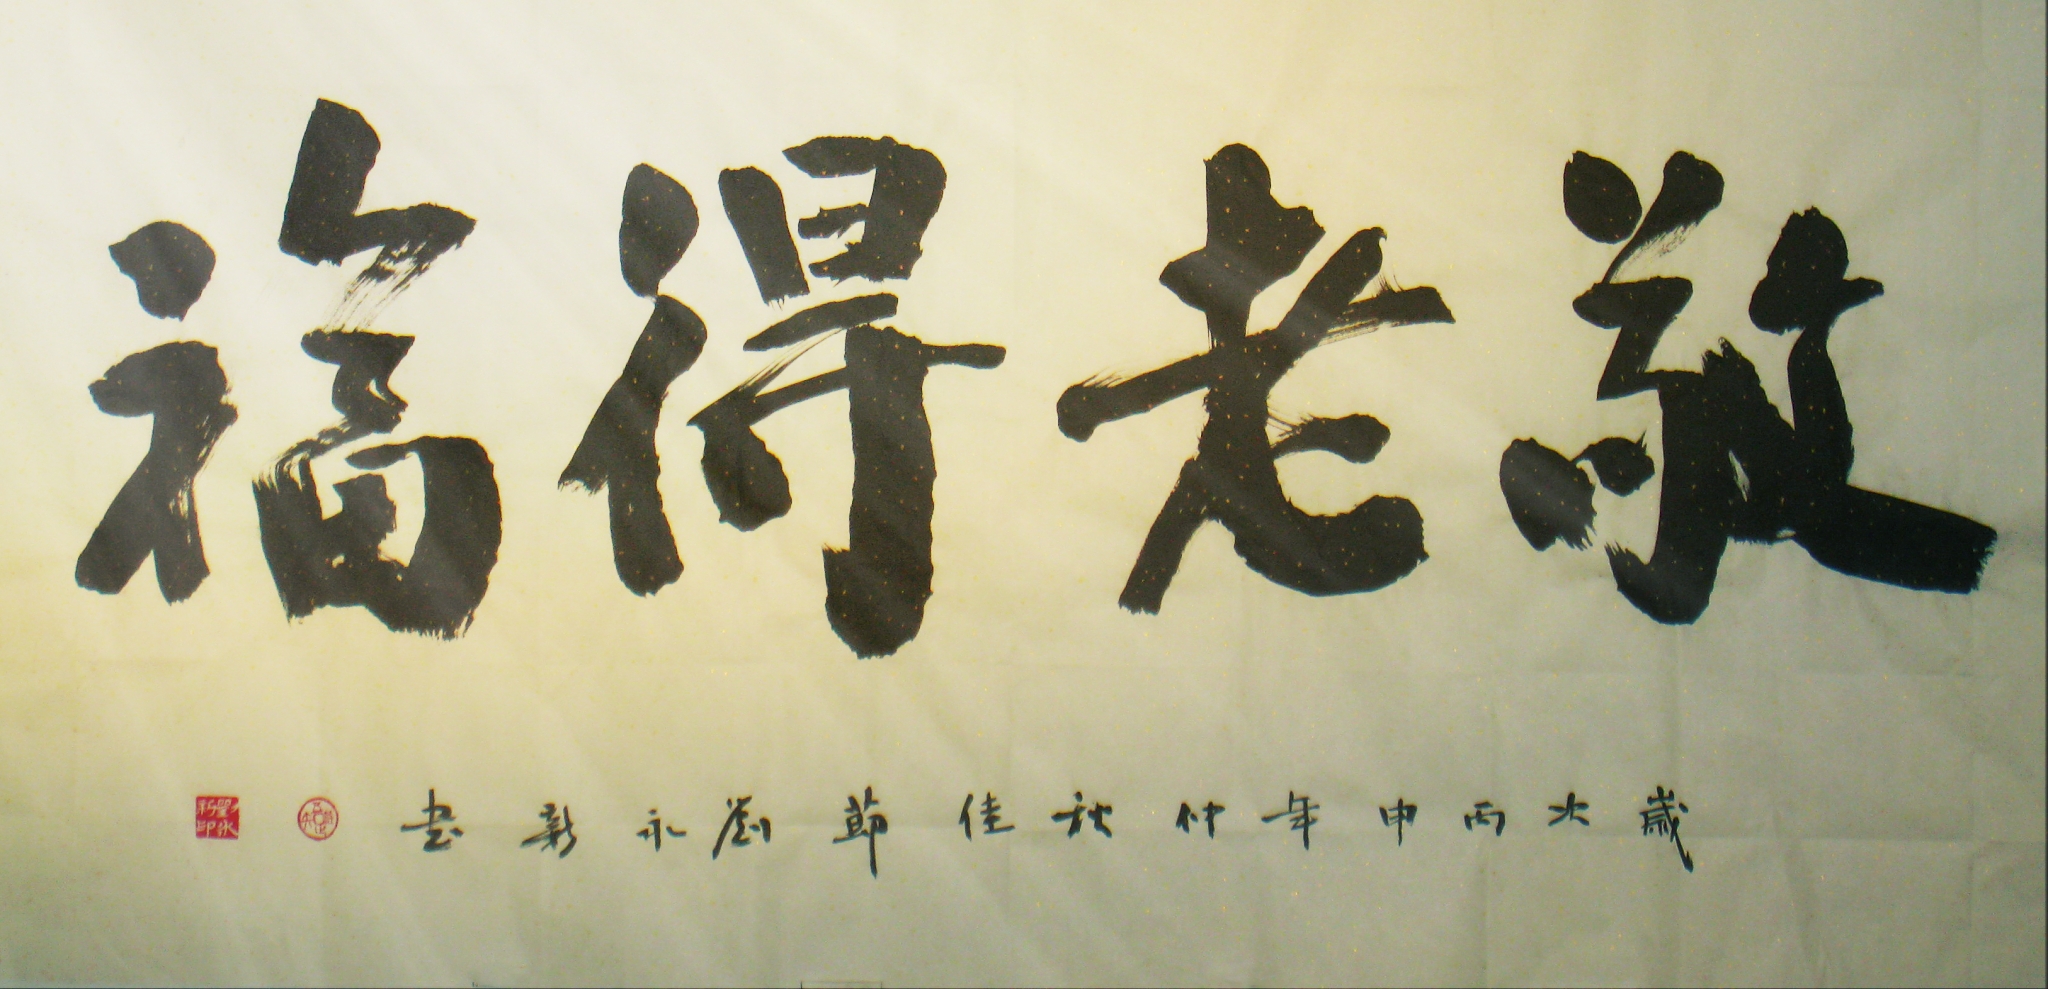 敬老得福
歲次丙申年仲秋佳節劉永新書
劉永新印